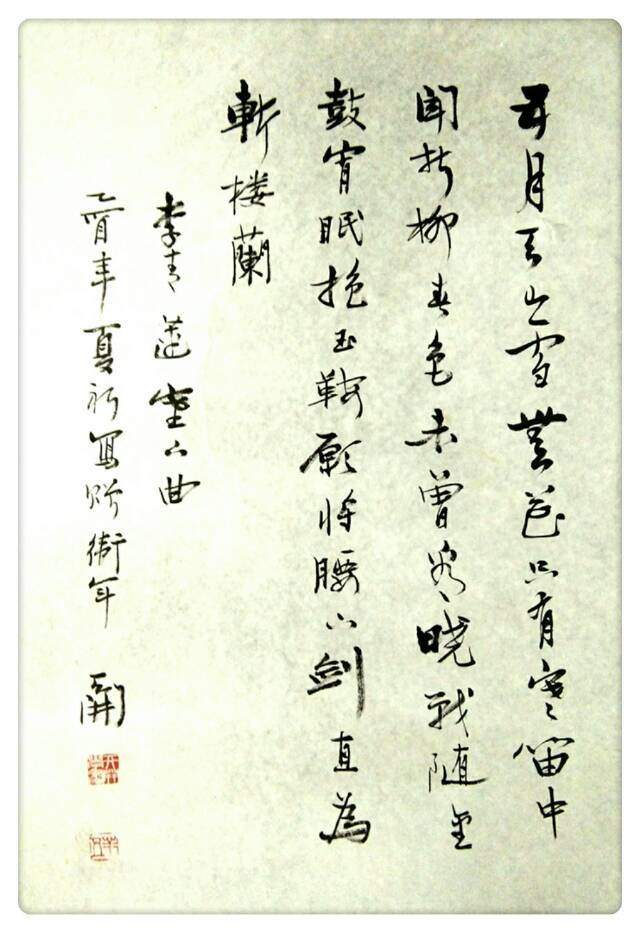 五月天山雪無花只有寒笛中
聞折柳春色未曾看晓戰随金
鼓宵眠抱玉鞍願将腰下劍直為
斬楼蘭
李青蓮塞下曲
乙酉年夏初寫衛年